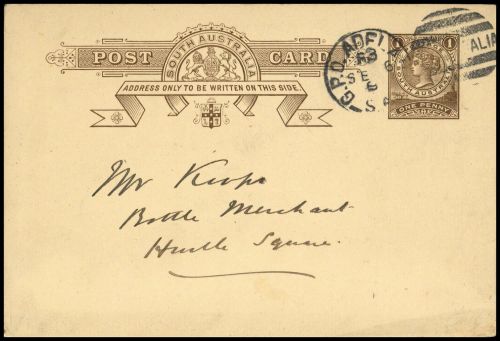 POST CARD
SOUTH AUSTRALIA
ADDRESS ONLY TO BE WRITTEN ON THIS SIDE.
G.P.O. ADELA
SE
S A
ALIA
1 1
SOUTH AUSTRALIA
ONE PENNY
Mr
Bottle Merchant
Hurtle Square.